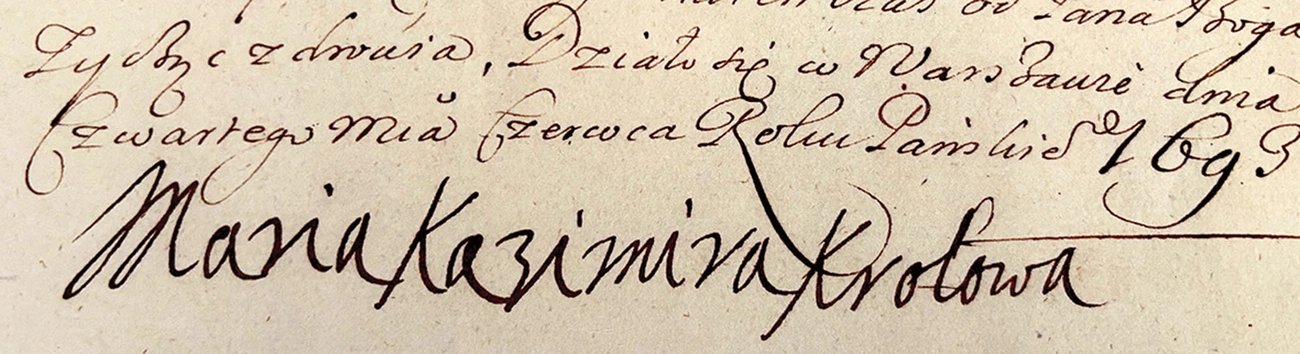 czas od Pana Boga
Życzęc zdrowia, Działo się w Warszawie dnia
Czwartego Mca Czerwca Roku Pańskieo 1693
Maria Kazimira Krolowa